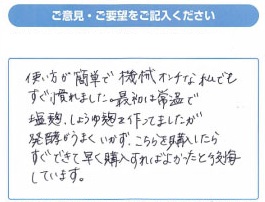 ご意見・ご要望をご記入ください
使い方が簡単で機械オンチな私でも
すぐ慣れました。最初は常温で
塩麹、しょうゆ麹を作ってましたが
発酵がうまくいかず、こちらを購入したら
すぐできて早く購入すればよかったと後悔
しています。